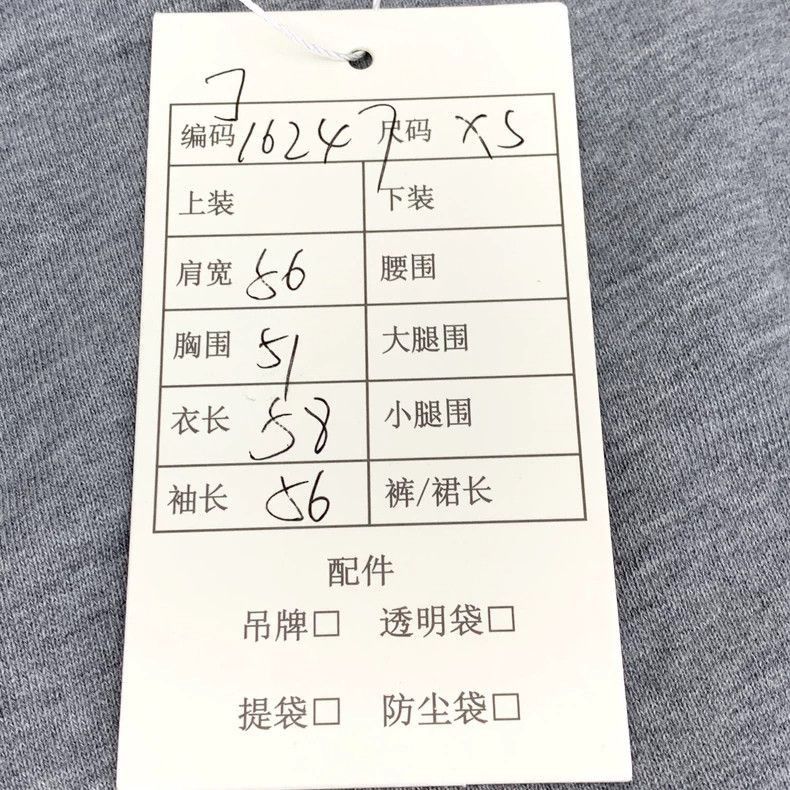 编码 16247 尺码 XS
上装 下装
肩宽 56 腰围
胸围 51 大腿围
衣长 58 小腿围
袖长 56 裤/裙长
配件
吊牌□ 透明袋□
提袋□ 防尘袋□